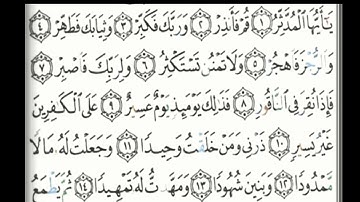 يَٰٓأَيُّهَا ٱلۡمُدَّثِّرُ ١ قُمۡ فَأَنذِرۡ ٢ وَرَبَّكَ فَكَبِّرۡ ٣ وَثِيَابَكَ فَطَهِّرۡ ٤
وَٱلرُّجۡزَ فَٱهۡجُرۡ ٥ وَلَا تَمۡنُن تَسۡتَكۡثِرُ ٦ وَلِرَبِّكَ فَٱصۡبِرۡ ٧
فَإِذَا نُقِرَ فِي ٱلنَّاقُورِ ٨ فَذَٰلِكَ يَوۡمَئِذٖ يَوۡمٌ عَسِيرٌ ٩ عَلَى ٱلۡكَٰفِرِينَ
غَيۡرُ يَسِيرٖ ١٠ ذَرۡنِي وَمَنۡ خَلَقۡتُ وَحِيدٗا ١١ وَجَعَلۡتُ لَهُۥ مَالٗا
مَّمۡدُودٗا ١٢ وَبَنِينَ شُهُودٗا ١٣ وَمَهَّدتُّ لَهُۥ تَمۡهِيدٗا ١٤ ثُمَّ يَطۡمَعُ